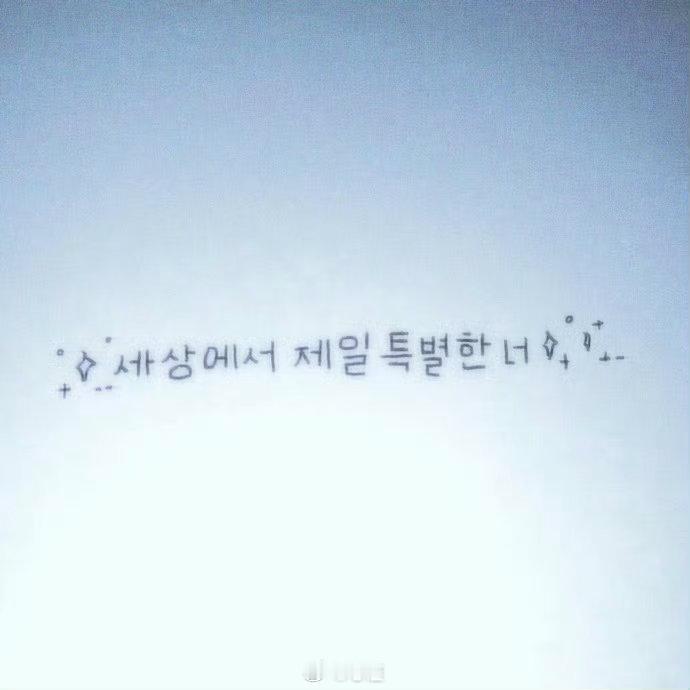 세상에서 제일 특별한 너